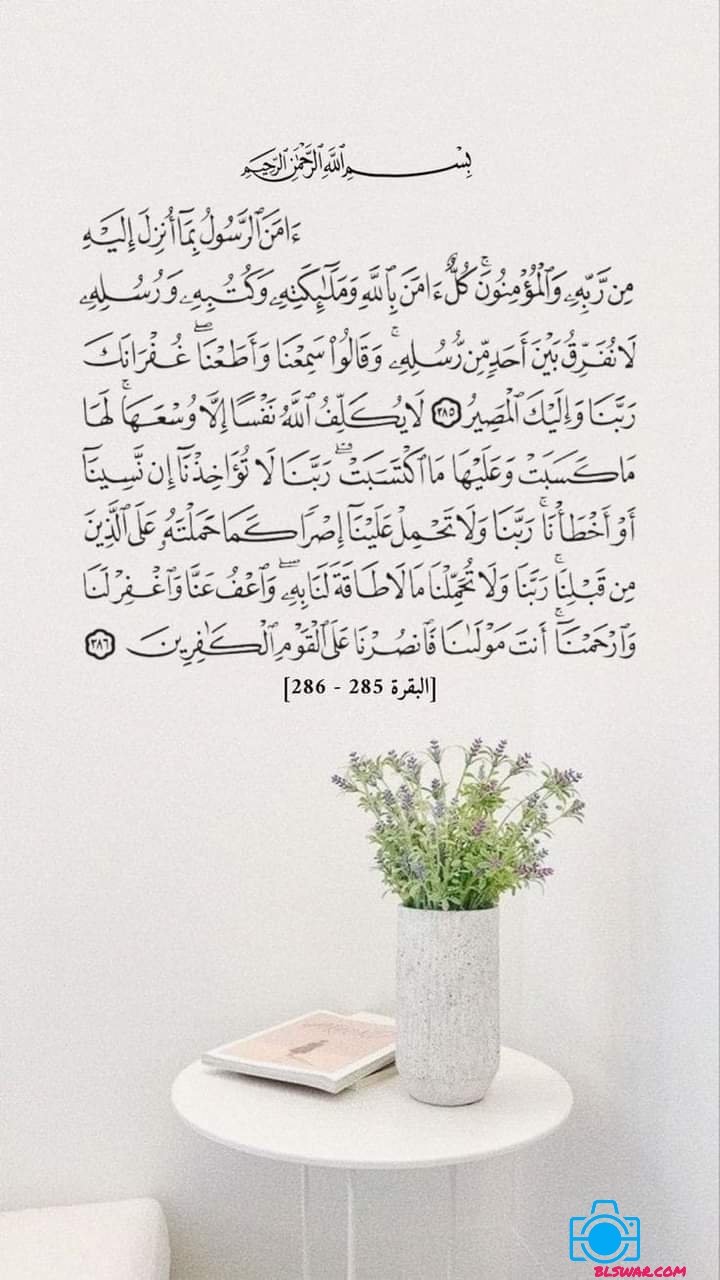 بِسْمِ ٱللَّهِ ٱلرَّحْمَٰنِ ٱلرَّحِيمِ
ءَامَنَ ٱلرَّسُولُ بِمَآ أُنزِلَ إِلَيْهِ
مِن رَّبِّهِۦ وَٱلْمُؤْمِنُونَ ۚ كُلٌّ ءَامَنَ بِٱللَّهِ وَمَلَٰٓئِكَتِهِۦ وَكُتُبِهِۦ وَرُسُلِهِۦ
لَا نُفَرِّقُ بَيْنَ أَحَدٍ مِّن رُّسُلِهِۦ ۚ وَقَالُوا۟ سَمِعْنَا وَأَطَعْنَا ۖ غُفْرَانَكَ
رَبَّنَا وَإِلَيْكَ ٱلْمَصِيرُ ٢٨٥ لَا يُكَلِّفُ ٱللَّهُ نَفْسًا إِلَّا وُسْعَهَا ۚ لَهَا
مَا كَسَبَتْ وَعَلَيْهَا مَا ٱكْتَسَبَتْ ۗ رَبَّنَا لَا تُؤَاخِذْنَآ إِن نَّسِينَآ
أَوْ أَخْطَأْنَا ۚ رَبَّنَا وَلَا تَحْمِلْ عَلَيْنَآ إِصْرًا كَمَا حَمَلْتَهُۥ عَلَى ٱلَّذِينَ
مِن قَبْلِنَا ۚ رَبَّنَا وَلَا تُحَمِّلْنَا مَا لَا طَاقَةَ لَنَا بِهِۦ ۖ وَٱعْفُ عَنَّا وَٱغْفِرْ لَنَا
وَٱرْحَمْنَآ ۚ أَنتَ مَوْلَىٰنَا فَٱنصُرْنَا عَلَى ٱلْقَوْمِ ٱلْكَٰفِرِينَ ٢٨٦
[البقرة 285 - 286]
BLSWAR.COM